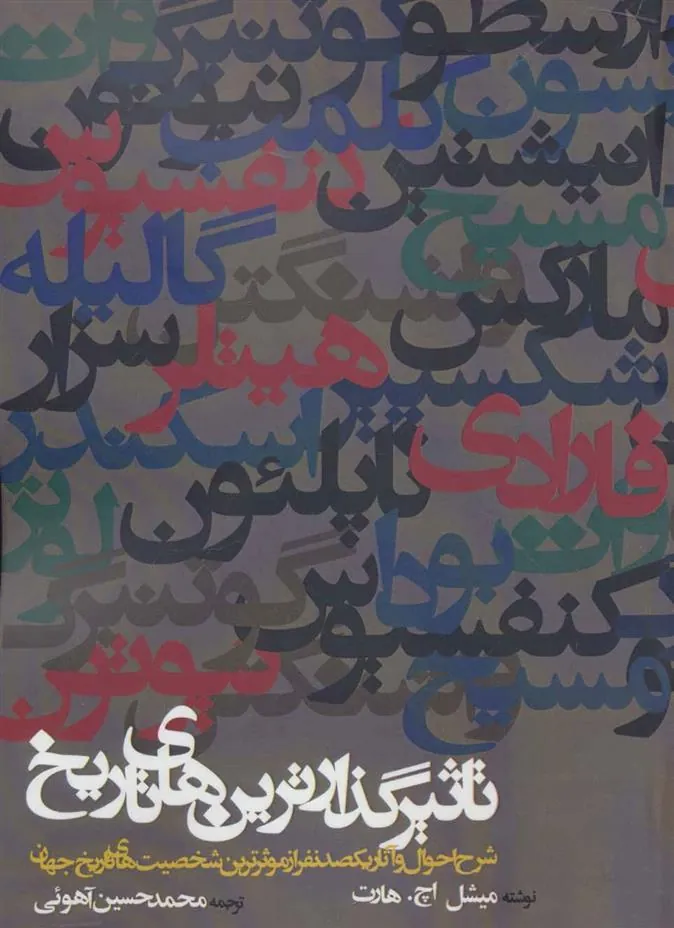 ارسطو گوتنبرگ وات
نیوتون
کلمب
انیشتین کنفسیوس
مسیح
گالیله
واشنگتن
مارکس
سزار
هیتلر
شکسپیر
اسکندر
فارادی
ناپلئون
وات
لوتر
بودا
گوتنبرگ
کنفسیوس
نیوتون
مسیح
تاثیرگذارترین‌های تاریخ
شرح احوال و آثار یکصد نفر از موثرترین شخصیت‌های تاریخ جهان
نوشته میشل اچ. هارت
ترجمه محمدحسین آهوئی